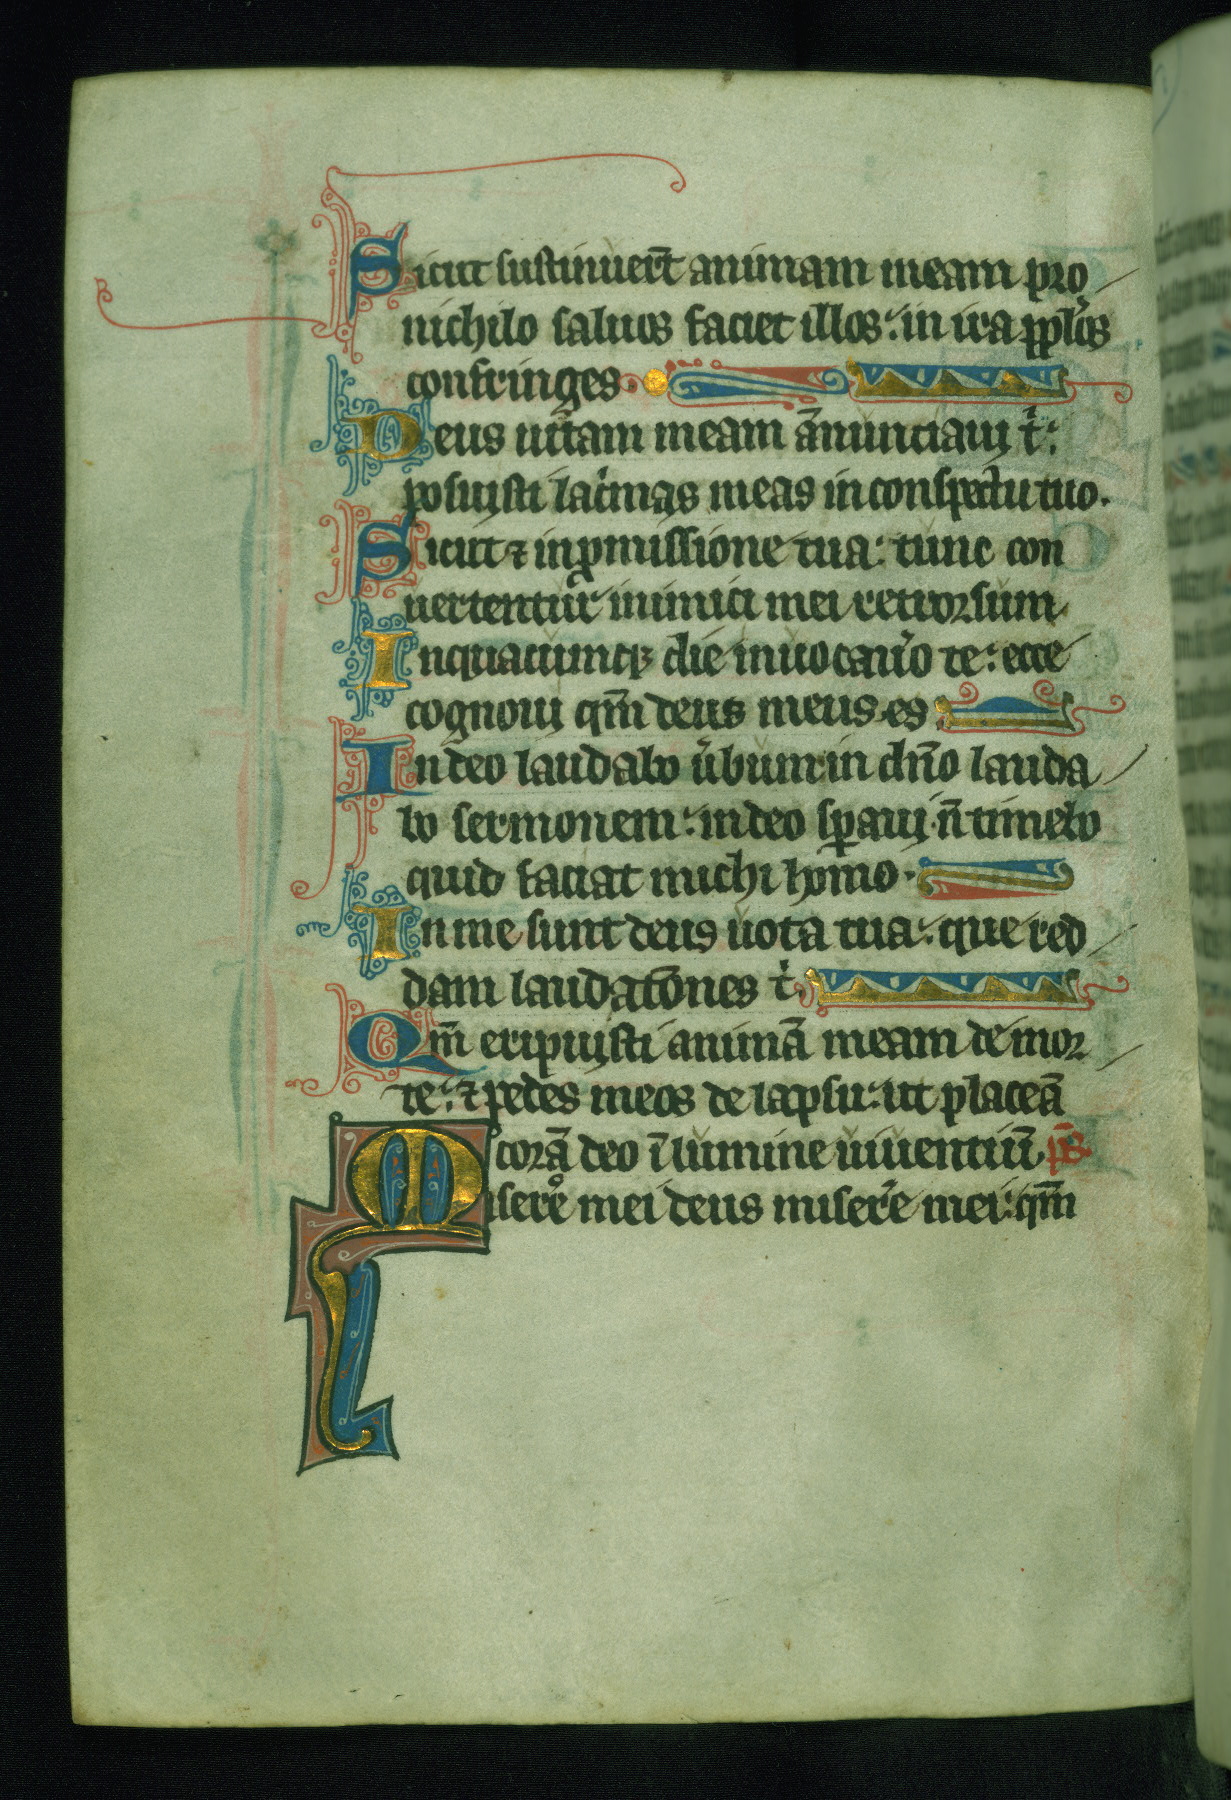 Sicut sustinuer̄t animam meam pro
nichilo saluos facies illos: in ira pplōs
confringes.
Deus uitam meam ānunciaui t̄:
posuisti lac̄mas meas in conspectu tuo.
Sicut ⁊ in ꝓmissione tua: tunc con
uertentur inimici mei retrorsum
In quacumqꝫ die inuocauo te: ecce
cognoui qm̄ deus meus es
In deo laudabo u̔bum in dn̄o lauda
bo sermonem: in deo sꝑaui n̄ timebo
quid faciat michi homo.
In me sunt deus uota tua: que red
dam laudatōnes t.
Qm̄ eripuisti animā meam de mor
te: ⁊ pedes meos de lapsu: ut placeā
corā deo ī lumine uiuentiū p̄s
Miserere mei deus miser̄e mei: qm̄